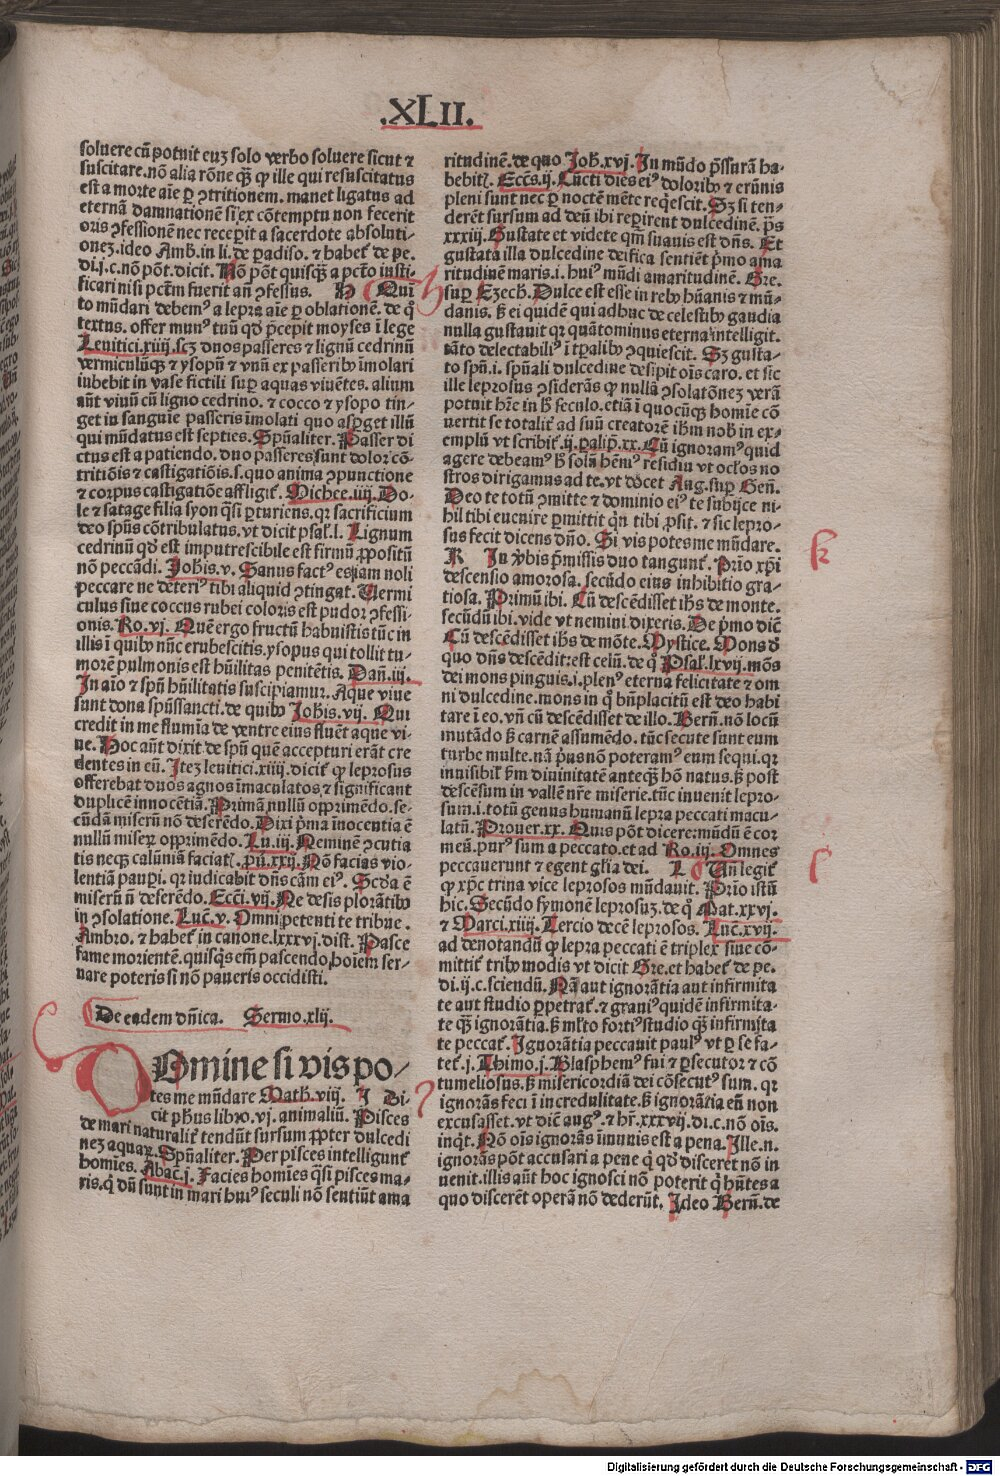 .XLII.
soluere cũ potuit euʒ solo verbo soluere sicut ⁊
suscitare. nõ alia rõne qͣʒ ꝙ ille qui resuscitatus
est a morte aĩe ꝑ ↄtritionem. manet ligatus ad
eternã damnationẽ si ex cõtemptu non fecerit
oris ↄfessionẽ nec recepit a sacerdote absoluti-
oneʒ. ideo Amb. in li. de padiso. ⁊ habet̃ de pe.
di. j. c. nõ põt. dicit. Nõ põt quisqͣʒ a pctõ iusti-
ficari nisi pctm̃ fuerit añ ↄfessus. H Qui
to mũdari debemꝰ a lepra aĩe ꝑ oblationẽ. de qͦ
textus. offer munꝰ tuũ qd̛ p̃cepit moyses ĩ lege
Leuitici. xiiij. scʒ duos passeres ⁊ lignũ cedrinũ
vermiculũqʒ ⁊ ysopũ ⁊ vnũ ex passeribꝰ ĩmolari
iubebit in vase fictili suꝑ aquas viuẽtes. alium
aũt viuũ cũ ligno cedrino. ⁊ cocco ⁊ ysopo tin-
get in sanguĩe passeris ĩmolati quo asꝑget illũ
qui mũdatus est septies. Spũaliter. Passer di
ctus est a patiendo. duo passeres sunt dolor cõ-
tritiõis ⁊ castigatiõis. s. quo anima ↄpunctione
⁊ corpus castigatiõe affligit̃. Michee. iiij. Do-
le ⁊ satage filia syon qͣsi ꝑturiens. qꝛ sacrificium
deo spũs cõtribulatus. vt dicit psal̃. l. Lignum
cedrinũ qd̛ est imputrescibile est firmũ ꝓpositũ
nõ peccãdi. Johis. v. Sanus factꝰ es iam noli
peccare ne deteriꝰ tibi aliquid ↄtingat. Vermi
culus siue coccus rubei coloris est pudor ↄfessi-
onis. Ro. vj. Quẽ ergo fructũ habuistis tũc in
illis ĩ quibꝰ nũc erubescitis. ysopus qui tollit tu-
morẽ pulmonis est hũilitas penitẽtis. Dañ. iij.
In aĩo ⁊ spũ hũilitatis suscipiamur. Aque viue
sunt dona spũssancti. de quibꝰ Johis. vij. Qui
credit in me flumĩa de ventre eius fluẽt aque vi-
ue. Hoc aũt dixit de spũ quẽ accepturi erãt cre
dentes in eũ. Iteʒ leuitici. xiiij. dicit̃ ꝙ leprosus
offerebat duos agnos ĩmaculatos. ⁊ significant
duplicẽ innocẽtiã. Primã nullũ opprimẽdo. se-
cũdã miserũ nõ deserẽdo. Dixi p̃ma inocentia ẽ
nullũ miseꝝ opprimẽdo. Lu. iij. Neminẽ ↄcutia
tis neqʒ calũniã faciat̃. p̃u. xxij. Nõ facias vio-
lentiã pauꝑi. qꝛ iudicabit dñs cãm eiꝰ. Scda ẽ
miserũ ñ deserẽdo. Ecci. vij. Ne desis ploratibꝰ
in ↄsolatione. Luc̃. v. Omni petenti te tribue.
Ambro. ⁊ habet̃ in canone. lxxxvj. dist. Pasce
fame morientẽ. quisqͣs em̃ pascendo hoĩem ser-
uare poteris si nõ paueris occidisti.
De eadem dñica. Sermo. xlij.
Domine si vis po-
tes me mũdare Math. viij. I Di-
cit ph̃us libro. vj. animaliũ. Pisces
de mari naturalit̃ tendũt sursum ꝓpter dulcedi
neʒ aquaꝝ. Spũaliter. Per pisces intelligunt̃
homĩes. Abac̃. j. Facies homĩes qͣsi pisces ma-
ris. q̃ dũ sunt in mari huiꝰ seculi nõ sentiũt ama
ritudinẽ. de quo Joh̃. xvj. In mũdo p̃ssurã ha-
bebit̃. Eccs̃. ij. Cũcti dies eiꝰ doloribꝰ ⁊ erũnis
pleni sunt nec ꝑ noctẽ mẽte reqͥescit. Sʒ si ten-
derẽt sursum ad deũ ibi reꝑirent dulcedinẽ. p̃s
xxxiij. Gustate et videte qm̃ suauis est dñs. Et
gustata illa dulcedine deifica sentiẽt p̃mo ama
ritudinẽ maris. i. huiꝰ mũdi amaritudinẽ. Gre.
suꝑ Ezech̃. Dulce est esse in rebꝰ hũanis ⁊ mũ-
danis. ß ei quidẽ qui adhuc de celestibꝰ gaudia
nulla gustauit qꝛ quãtominus eterna intelligit.
tãto delectabiliꝰ ĩ tꝑalibꝰ ↄquiescit. Sʒ gusta-
to spũ. i. spũali dulcedine desipit oĩs caro. et sic
ille leprosus ↄsiderãs ꝙ nullã ↄsolatõneʒ verã
potuit hr̃e in h̛ seculo. etiã ĩ quocũqʒ homĩe cõ
uertit se totalit̃ ad suũ creatorẽ ihm̃ nob̃ in ex-
emplũ vt scribit̃. ij. ꝑalip̃. xx. Cũ ignoramꝰ quid
agere debeamꝰ h̛ solũ hẽmꝰ residui vt ocl̃os no
stros dirigamus ad te. vt docet Aug. suꝑ Geñ.
Deo te totũ ↄmitte ⁊ dominio eiꝰ te subijce ni-
hil tibi euenire ꝑmittit qͥn tibi ꝓsit. ⁊ sic lepro-
sus fecit dicens dño. Si vis potes me mũdare.
K In ṽbis p̃missis duo tangunt̃. Prĩo xp̃i
descensio amorosa. secũdo eius inhibitio gra-
tiosa. Primũ ibi. Cũ descẽdisset ihs̃ de monte.
secũdũ ibi. vide vt nemini dixeris. De p̃mo dic̃
Cũ descẽdisset ihs̃ de mõte. Mystice. Mons d̛
quo dñs descẽdit: est celũ. de qͦ Psal̃. lxvij. mõs
dei mons pinguis. i. plenꝰ eterna felicitate ⁊ om
ni dulcedine. mons in qͦ bñplacitũ est deo habi
tare ĩ eo. vñ cũ descẽdisset de illo. Berñ. nõ locũ
mutãdo ß carnẽ assumẽdo. tũc secute sunt eum
turbe multe. nã p̃us nõ poteramꝰ eum sequi. qꝛ
inuisibil̃ ẽ ßm diuinitatẽ anteqͣʒ hõ natus. ß post
descẽsum in vallẽ nr̃e miserie. tũc inuenit lepro-
sum. i. totũ genus humanũ lepra peccati macu-
latũ. Prouer. xx. Quis põt dicere: mũdũ ẽ cor
meũ. purꝰ sum a peccato. et ad Ro. iij. Omnes
peccauerunt ⁊ egent gl̃ia dei. L Vñ legit̃
ꝙ xp̃c trina vice leprosos mũdauit. Prĩo istũ
hic. Secũdo symonẽ leprosuʒ. de qͦ Mat. xxvj.
⁊ Marci. xiiij. Tercio decẽ leprosos. Luc̃. xvij.
ad denotandũ ꝙ lepra peccati ẽ triplex siue cõ-
mittit̃ tribꝰ modis vt dicit Gre. et habet̃ de pe.
di. ij. c. sciendũ. Nã aut ignorãtia aut infirmita
te aut studio ꝑpetrat̃. ⁊ grauiꝰ quidẽ infirmita-
te qͣʒ ignorãtia. ß ml̃to fortiꝰ studio qͣʒ infirmita
te peccat̃. Ignorãtia peccauit paulꝰ vt ꝑ se fa-
tet̃. j. Thimo. j. Blasphemꝰ fui ⁊ ꝑsecutor ⁊ cõ
tumeliosus. ß misericordiã dei cõsecutꝰ sum. qꝛ
ignorãs feci ĩ incredulitate. ß ignorãtia eũ non
excusasset. vt dic̃ augꝰ. ⁊ hr̃. xxxvij. di. c. nõ oĩs.
inqͥt. Nõ oĩs ignorãs ĩmunis est a pena. Ille. n.
ignorãs põt accusari a pene q̃ qd̛ disceret nõ in
uenit. illis aũt hoc ignosci nõ poterit q̃ hñtes a
quo discerẽt operã nõ dederũt. Ideo Berñ. de
h
k
l
Digitalisierung gefördert durch die Deutsche Forschungsgemeinschaft - DFG